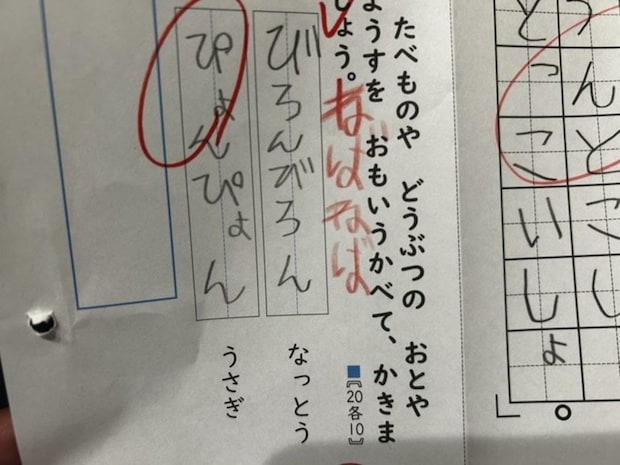 うんとこし
どっこいしょ
たべものや　どうぶつの　おとや
ようすを　おもいうかべて、かきま
しょう。
■〖20各10〗
ねばねば
びろんびろん
なっとう
ぴょんぴょん
うさぎ